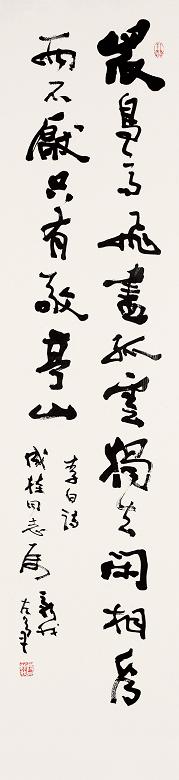 眾鳥高飛盡孤雲獨去閑相看
兩不厭只有敬亭山
李白詩
桂同志属
新我
左笔